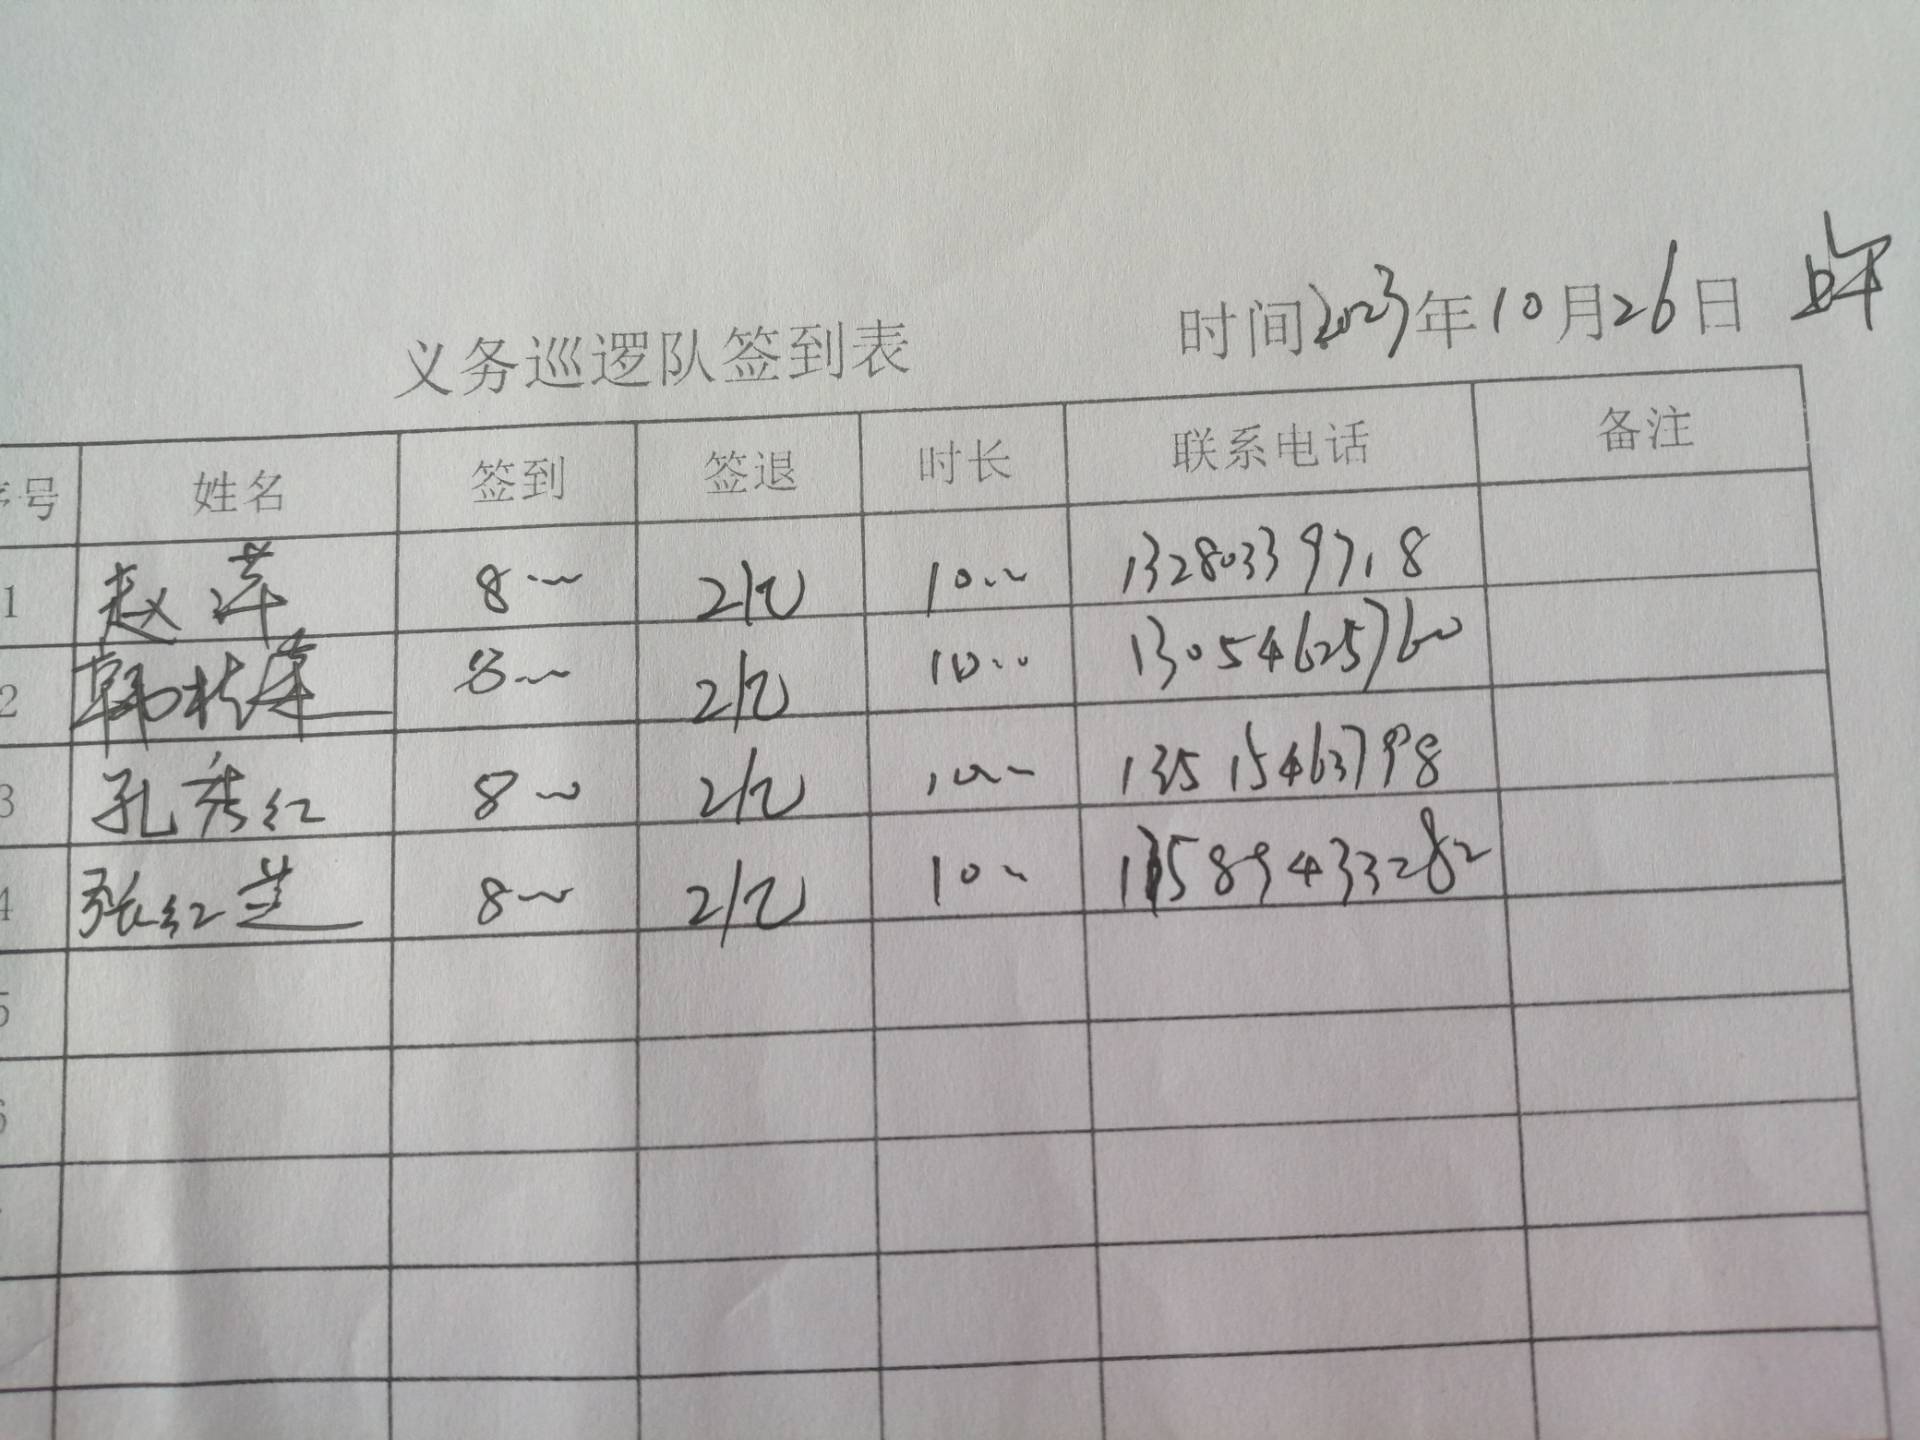 时间2023年10月26日 上午
义务巡逻队签到表
序号 姓名 签到 签退 时长 联系电话 备注
1 赵萍 8 10 13280339718
2 韩桂莲 8 10 13054625760
3 孔秀红 8 10 13515463798
4 张红芝 8 10 13589433282
5
6